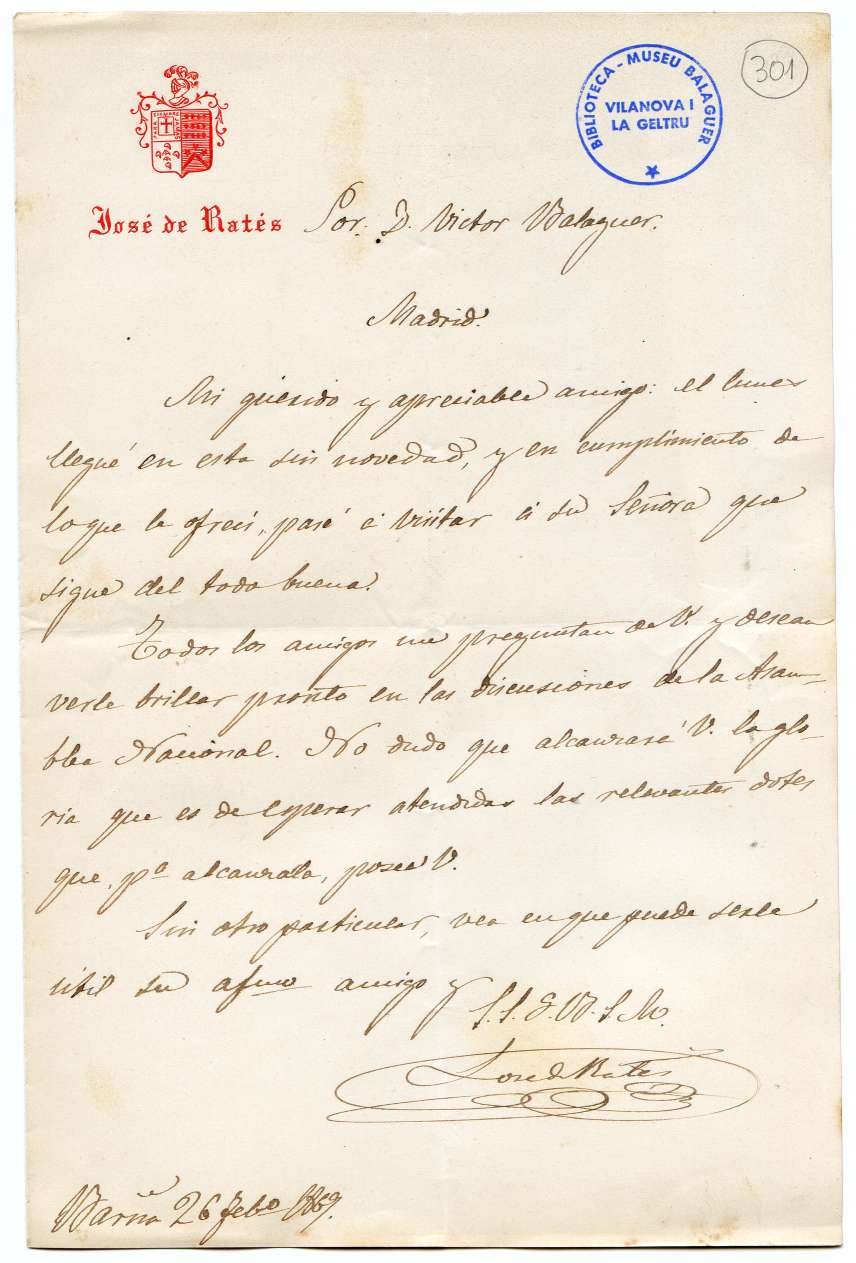 BIBLIOTECA - MUSEU BALAGUER
VILANOVA I
LA GELTRU
301
José de Ratés
Sor. D. Victor Balaguer.
Madrid.
Mi querido y apreciable amigo: el lunes
llegué en esta sin novedad, y en cumplimiento de
lo que le ofrecí, pasé á visitar á su Señora que
sigue del todo buena.
Todos los amigos me preguntan de V. y desean
verle brillar pronto en las discusiones de la Asam-
blea Nacional. No dudo que alcanzará V. la glo-
ria que es de esperar atendidas las relevantes dotes
que, pa alcanzarla, posee V.
Sin otro particular, vea en que puede serle
útil su afmo amigo y
S. S. Q. B. S. M.
Jose de Ratés
Barna 26 Febo 1869.